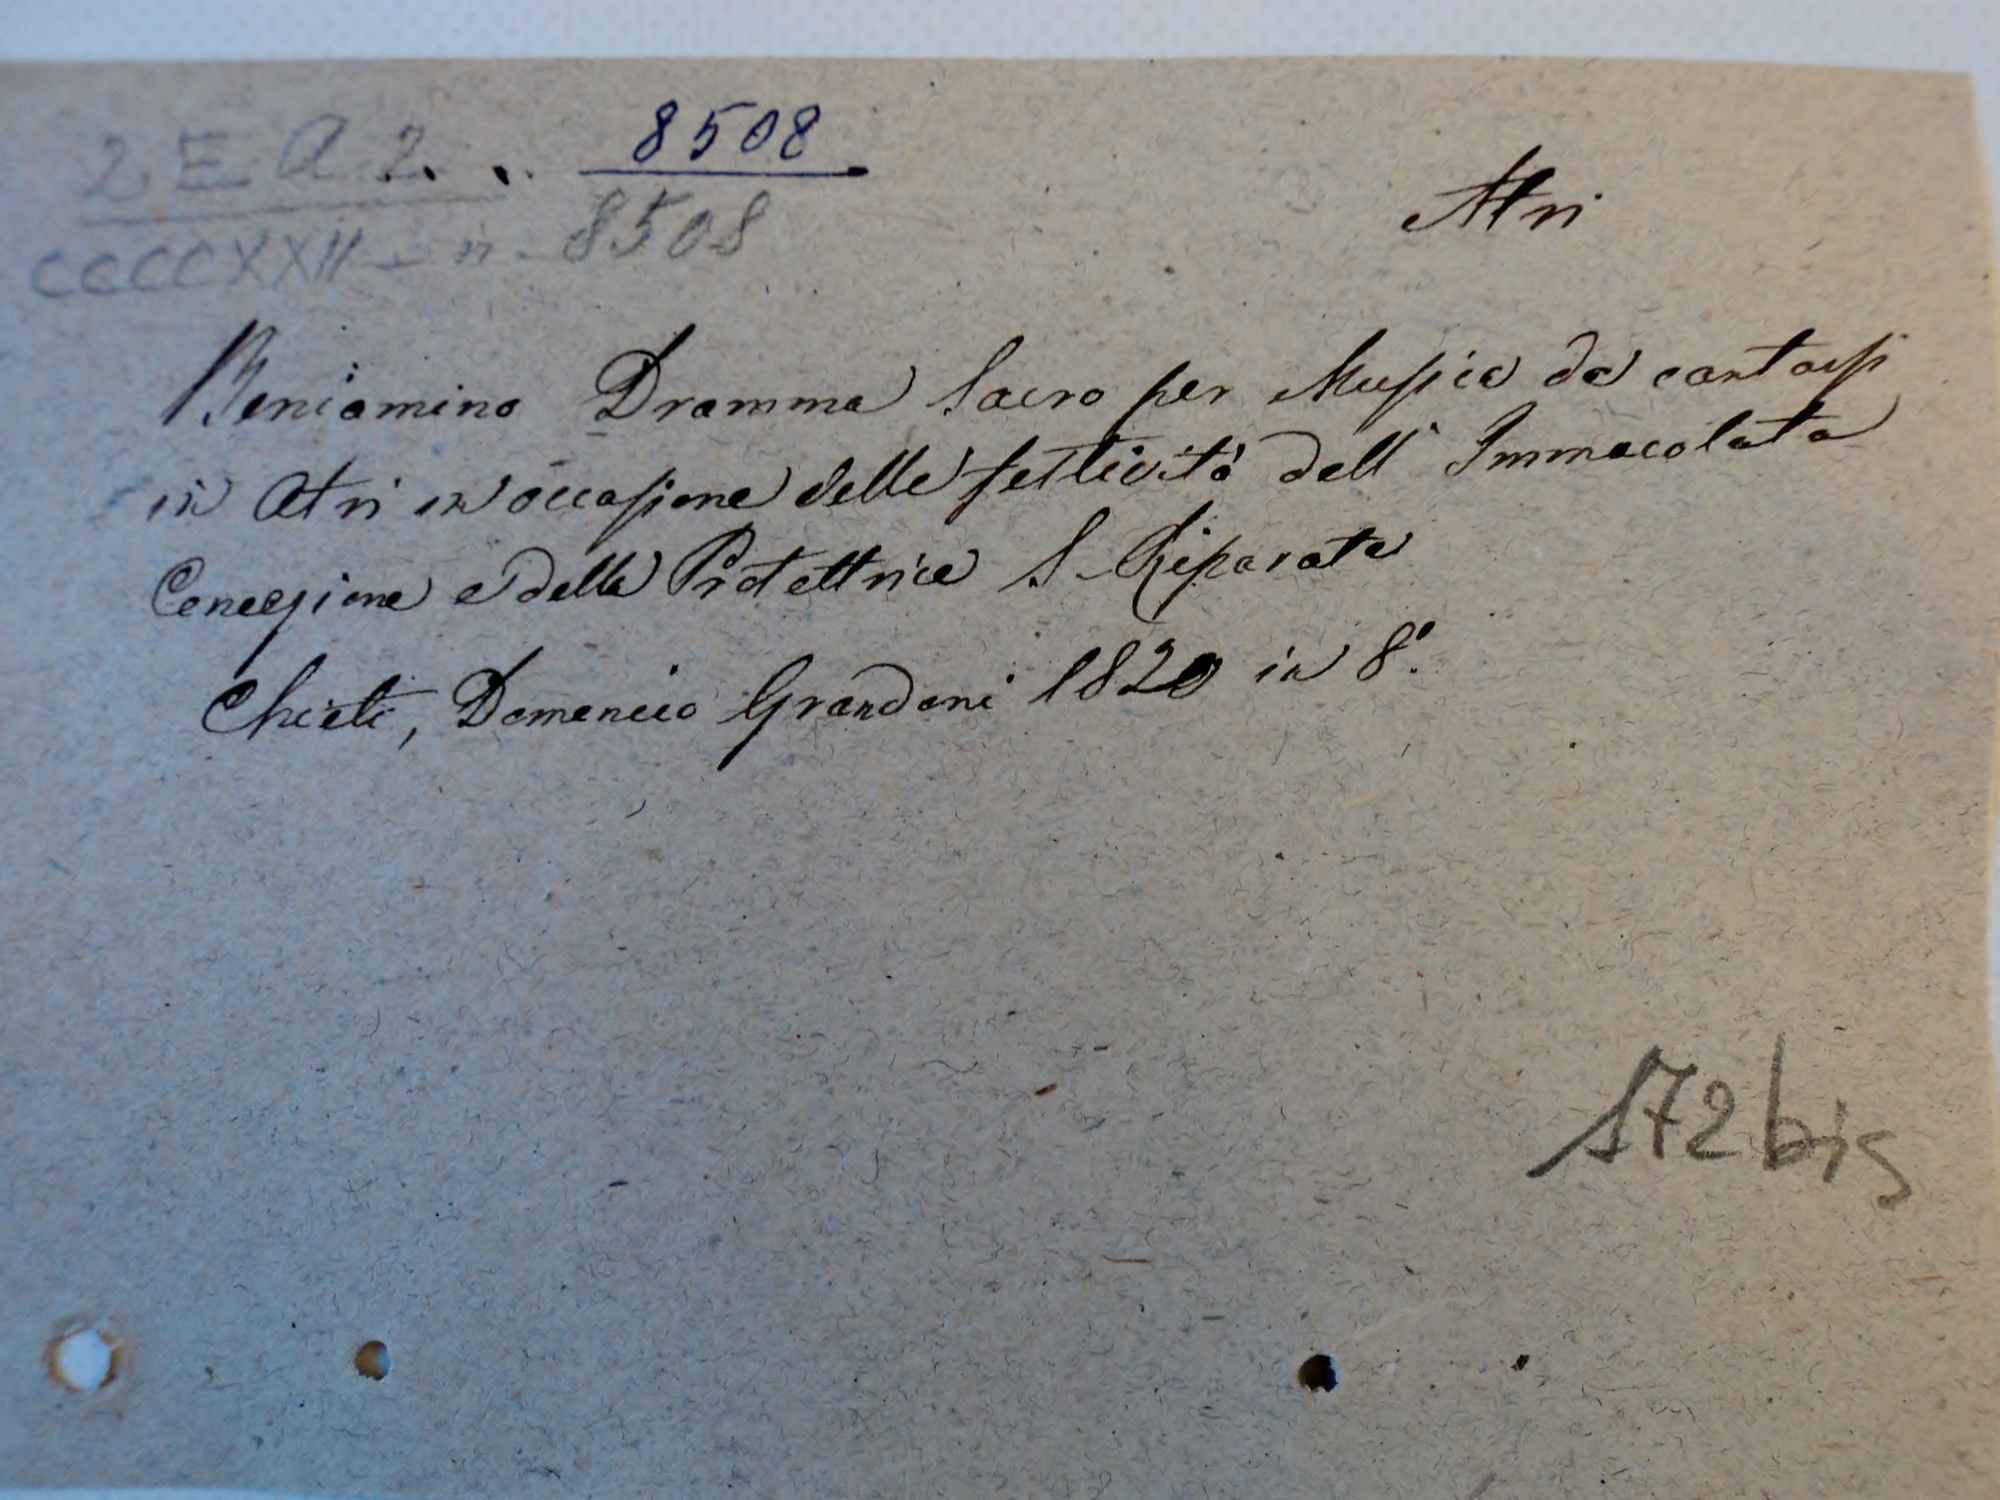 2 E A 2. . 8508
CCCCXXII - n. 8508
Atri
Beniamino Dramma Sacro per Musica da cantarsi
in Atri in occasione delle festività dell' Immacolata
Concezione e della Protettrice S. Riparata
Chieti, Domenico Grandoni 1820 in 8º.
172 bis